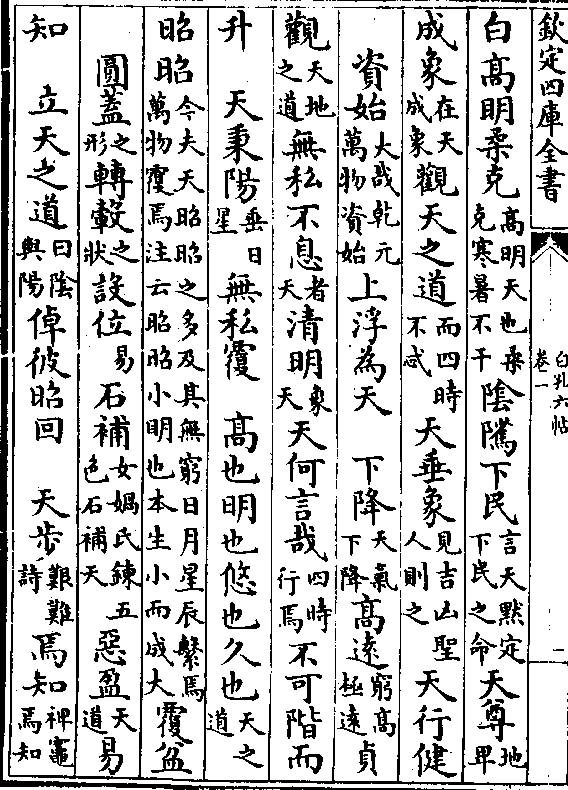 欽定四庫全書 白孔六帖 卷一 一
白高明柔克高明天也柔克寒暑不干陰隲下民言天默定下民之命天尊地卑
成象在天成象觀天之道而四時不忒 天垂象見吉凶聖人則之 天行健
資始大哉乾元萬物資始上浮為天 下降天氣下降高遠窮高極遠貞
觀天地之道無私不息者天清明象天天何言哉四時行焉不可階而
升 天秉陽垂日星 無私覆 高也明也悠也久也天之道
昭昭今夫天昭昭之多及其無窮日月星辰繫焉萬物覆焉注云昭昭小明也本生小而成大覆盆
圓蓋之形轉轂之狀設位易石補女媧氏鍊五色石補天惡盈天道易
知 立天之道曰陰與陽倬彼昭回 天步艱難詩焉知裨竈焉知